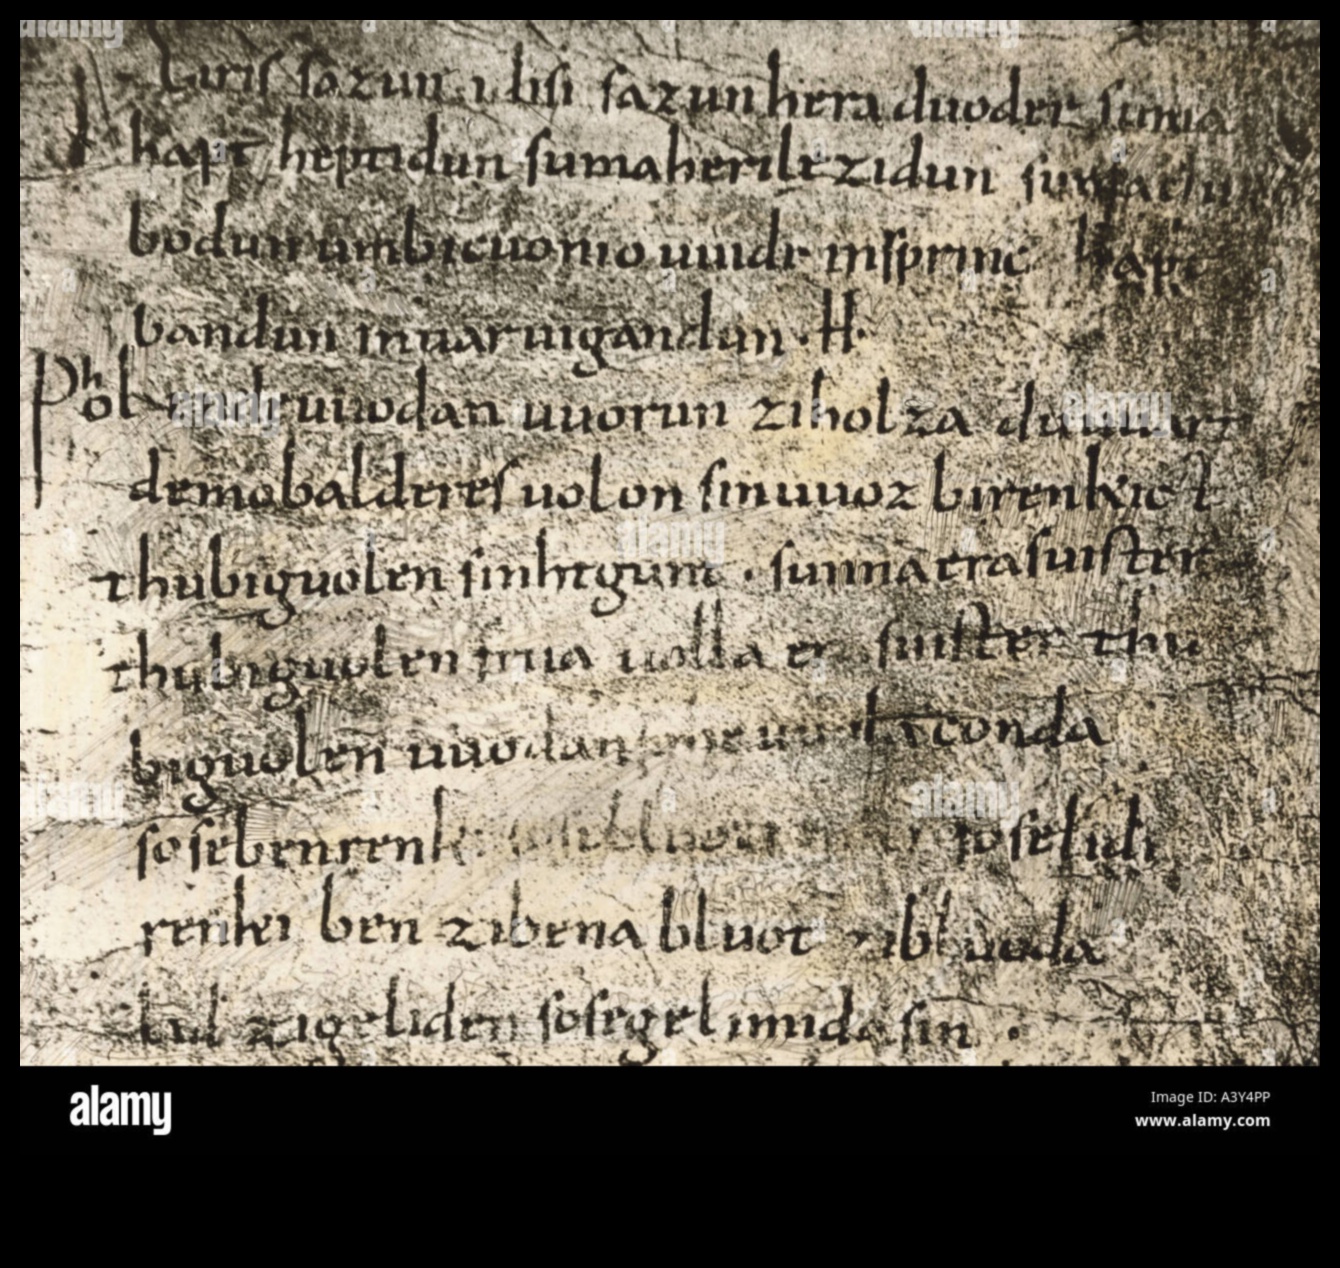 Eiris sazun idisi sazun hera duoder suma
hapt heptidun suma heri lezidun suma clu
bodun umbi cuonio uuidi insprinc hapt
bandun inuar uigandun · H·
Phol ende uuodan uuorun zi holza du uuart
demo balderes uolon sin uuoz birenkict
thu biguolen sinhtgunt · sunna era suister
thu biguolen friia uolla era suister thu
biguolen uuodan so he uuola conda
sose benrenki sose bluotrenki sose lidi
renki ben zi bena bluot zi bluoda
lid zi geliden sose gelimida sin ·
alamy
Image ID: A3Y4PP
www.alamy.com